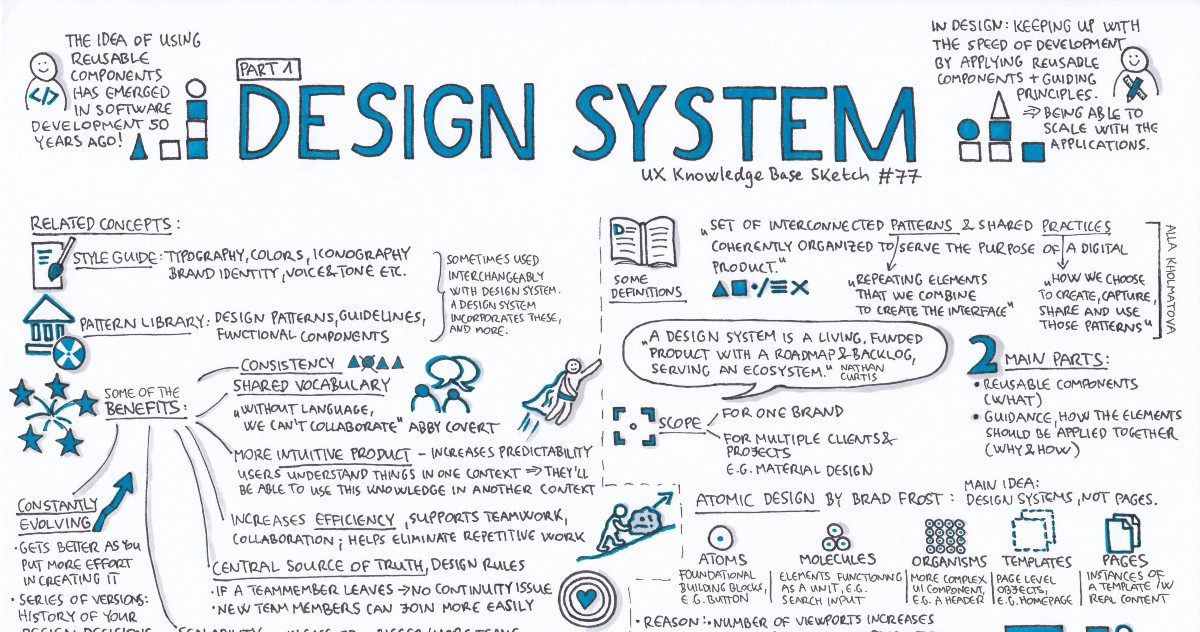 THE IDEA OF USING
REUSABLE
COMPONENTS
HAS EMERGED
IN SOFTWARE
DEVELOPMENT 50
YEARS AGO!
</>
PART 1
DESIGN SYSTEM
UX Knowledge Base Sketch #77
IN DESIGN: KEEPING UP WITH
THE SPEED OF DEVELOPMENT
BY APPLYING REUSABLE
COMPONENTS + GUIDING
PRINCIPLES.
⇒ BEING ABLE TO
SCALE WITH THE
APPLICATIONS.
RELATED CONCEPTS:
STYLE GUIDE: TYPOGRAPHY, COLORS, ICONOGRAPHY
BRAND IDENTITY, VOICE & TONE ETC.
PATTERN LIBRARY: DESIGN PATTERNS, GUIDELINES,
FUNCTIONAL COMPONENTS
SOMETIMES USED
INTERCHANGEABLY
WITH DESIGN SYSTEM.
A DESIGN SYSTEM
INCORPORATES THESE,
AND MORE.
SOME OF THE
BENEFITS:
CONSISTENCY
SHARED VOCABULARY
„WITHOUT LANGUAGE,
WE CAN'T COLLABORATE" ABBY COVERT
MORE INTUITIVE PRODUCT – INCREASES PREDICTABILITY
USERS UNDERSTAND THINGS IN ONE CONTEXT ⇒ THEY'LL
BE ABLE TO USE THIS KNOWLEDGE IN ANOTHER CONTEXT
INCREASES EFFICIENCY, SUPPORTS TEAMWORK,
COLLABORATION; HELPS ELIMINATE REPETITIVE WORK
CENTRAL SOURCE OF TRUTH, DESIGN RULES
• IF A TEAMMEMBER LEAVES → NO CONTINUITY ISSUE
• NEW TEAM MEMBERS CAN JOIN MORE EASILY
CONSTANTLY
EVOLVING
• GETS BETTER AS YOU
PUT MORE EFFORT
IN CREATING IT
• SERIES OF VERSIONS:
HISTORY OF YOUR
DESIGN DECISIONS
D
SOME
DEFINITIONS
„SET OF INTERCONNECTED PATTERNS & SHARED PRACTICES
COHERENTLY ORGANIZED TO SERVE THE PURPOSE OF A DIGITAL
PRODUCT."
„REPEATING ELEMENTS
THAT WE COMBINE
TO CREATE THE INTERFACE"
„HOW WE CHOOSE
TO CREATE, CAPTURE,
SHARE AND USE
THOSE PATTERNS"
ALLA KHOLMATOVA
„A DESIGN SYSTEM IS A LIVING, FUNDED
PRODUCT WITH A ROADMAP & BACKLOG,
SERVING AN ECOSYSTEM." NATHAN
CURTIS
SCOPE
FOR ONE BRAND
FOR MULTIPLE CLIENTS &
PROJECTS
E.G. MATERIAL DESIGN
2 MAIN PARTS:
• REUSABLE COMPONENTS
(WHAT)
• GUIDANCE, HOW THE ELEMENTS
SHOULD BE APPLIED TOGETHER
(WHY & HOW)
ATOMIC DESIGN BY BRAD FROST:
MAIN IDEA:
DESIGN SYSTEMS, NOT PAGES.
ATOMS
FOUNDATIONAL
BUILDING BLOCKS,
E.G. BUTTON
MOLECULES
ELEMENTS FUNCTIONNG
AS A UNIT, E.G.
SEARCH INPUT
ORGANISMS
MORE COMPLEX
UI COMPONENT,
E.G. A HEADER
TEMPLATES
PAGE LEVEL
OBJECTS,
E.G. HOMEPAGE
PAGES
INSTANCES OF
A TEMPLATE /W
REAL CONTENT
• REASON: • NUMBER OF VIEWPORTS INCREASES